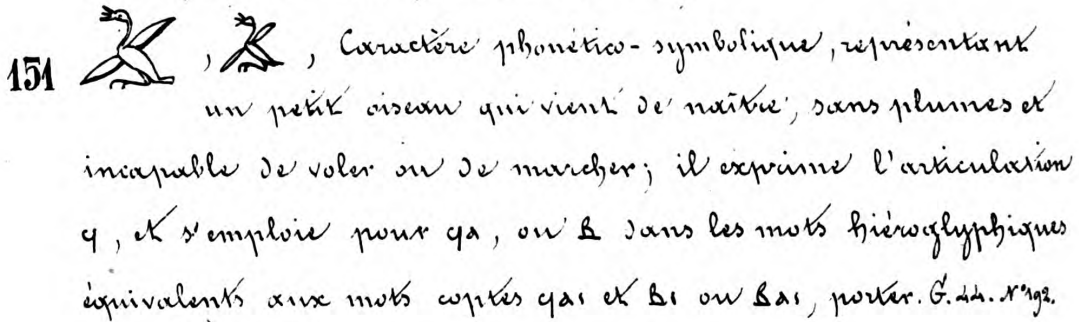 151 , , Caractère phonético-symbolique, représentant
un petit oiseau qui vient de naître, sans plumes et
incapable de voler ou de marcher; il exprime l'articulation
ϥ, et s'emploie pour ϥⲁ, ou ⲃ dans les mots hiéroglyphiques
équivalents aux mots coptes ϥⲁⲓ et ⲃⲓ ou ⲃⲁⲓ, porter. G. 44. N° 192.